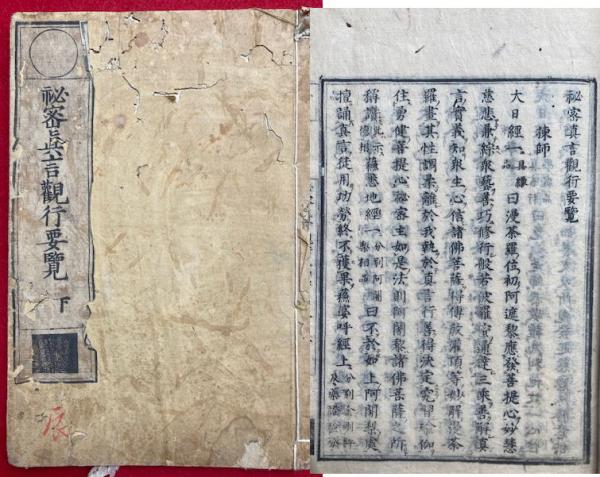 祕密眞言觀行要覽 下
辰
祕密眞言觀行要覽
揀師
大日經一具緣品曰漫荼羅位初阿闍黎應發菩提心妙慧
慈悲兼綜衆藝善巧修行般若波羅蜜通達三乘善解眞
言實義知衆生心信諸佛菩薩得傳敎灌頂等妙解漫荼
羅畫其性調柔離於我執於眞言行善得決定究習瑜伽
住勇健菩提心祕密主如是法則阿闍黎諸佛菩薩之所
稱讚蘇悉地經一分別阿闍梨相品曰不於如上阿闍梨處
擅誦眞言徒用功勞終不獲果蘓婆呼經上分別金剛杵